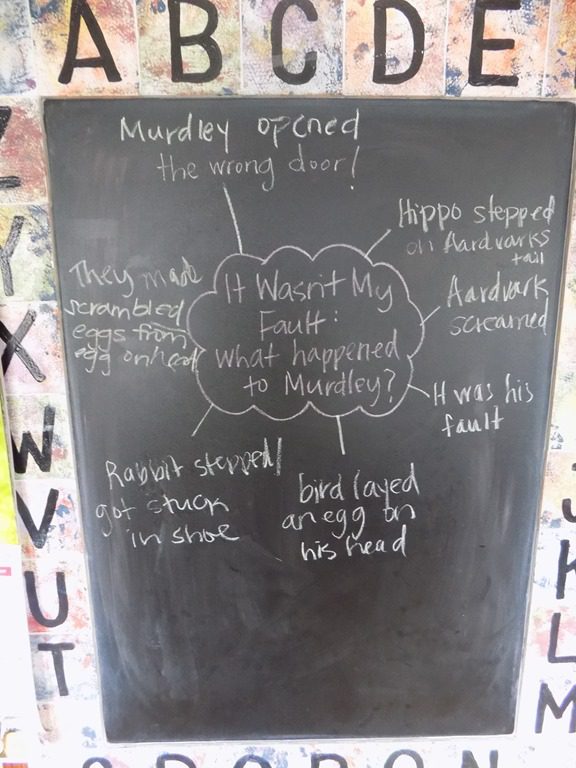 A B C D E
Murdley opened
the wrong door!
Hippo stepped
on Aardvarks
tail
Aardvark
screamed
It was his
fault
It Wasn't My
Fault:
what happened
to Murdley?
They made
scrambled
eggs from
egg on head
Rabbit stepped/
got stuck
in shoe
bird layed
an egg on
his head
Z
Y
X
W
V
U
T
J
K
L
M